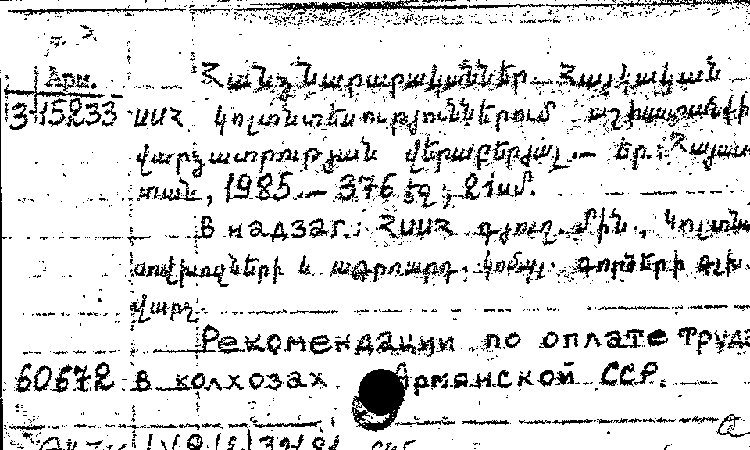 Арм.
Հանձնարարականներ Հայկական
3-15233 ՍՍՀ կոլտնտեսություններում աշխատանքի
վարձատրության վերաբերյալ.— Եր.: Հայաս
տան, 1985.— 376 էջ; 21սմ.
В надзаг.: ՀՍՍՀ գյուղ. մին., Կոլտնտ
սովխոզների և ագրոարդ. կոմպլ. գործերի գլխ.
վարչ.
Рекомендации по оплате труда
60672 в колхозах Армянской ССР.